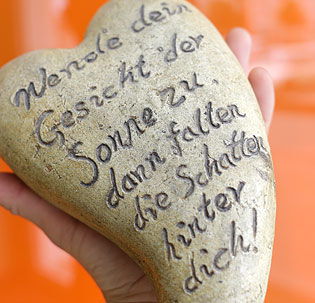 Wende dein
Gesicht der
Sonne zu,
dann fallen
die Schatten
hinter
dich!